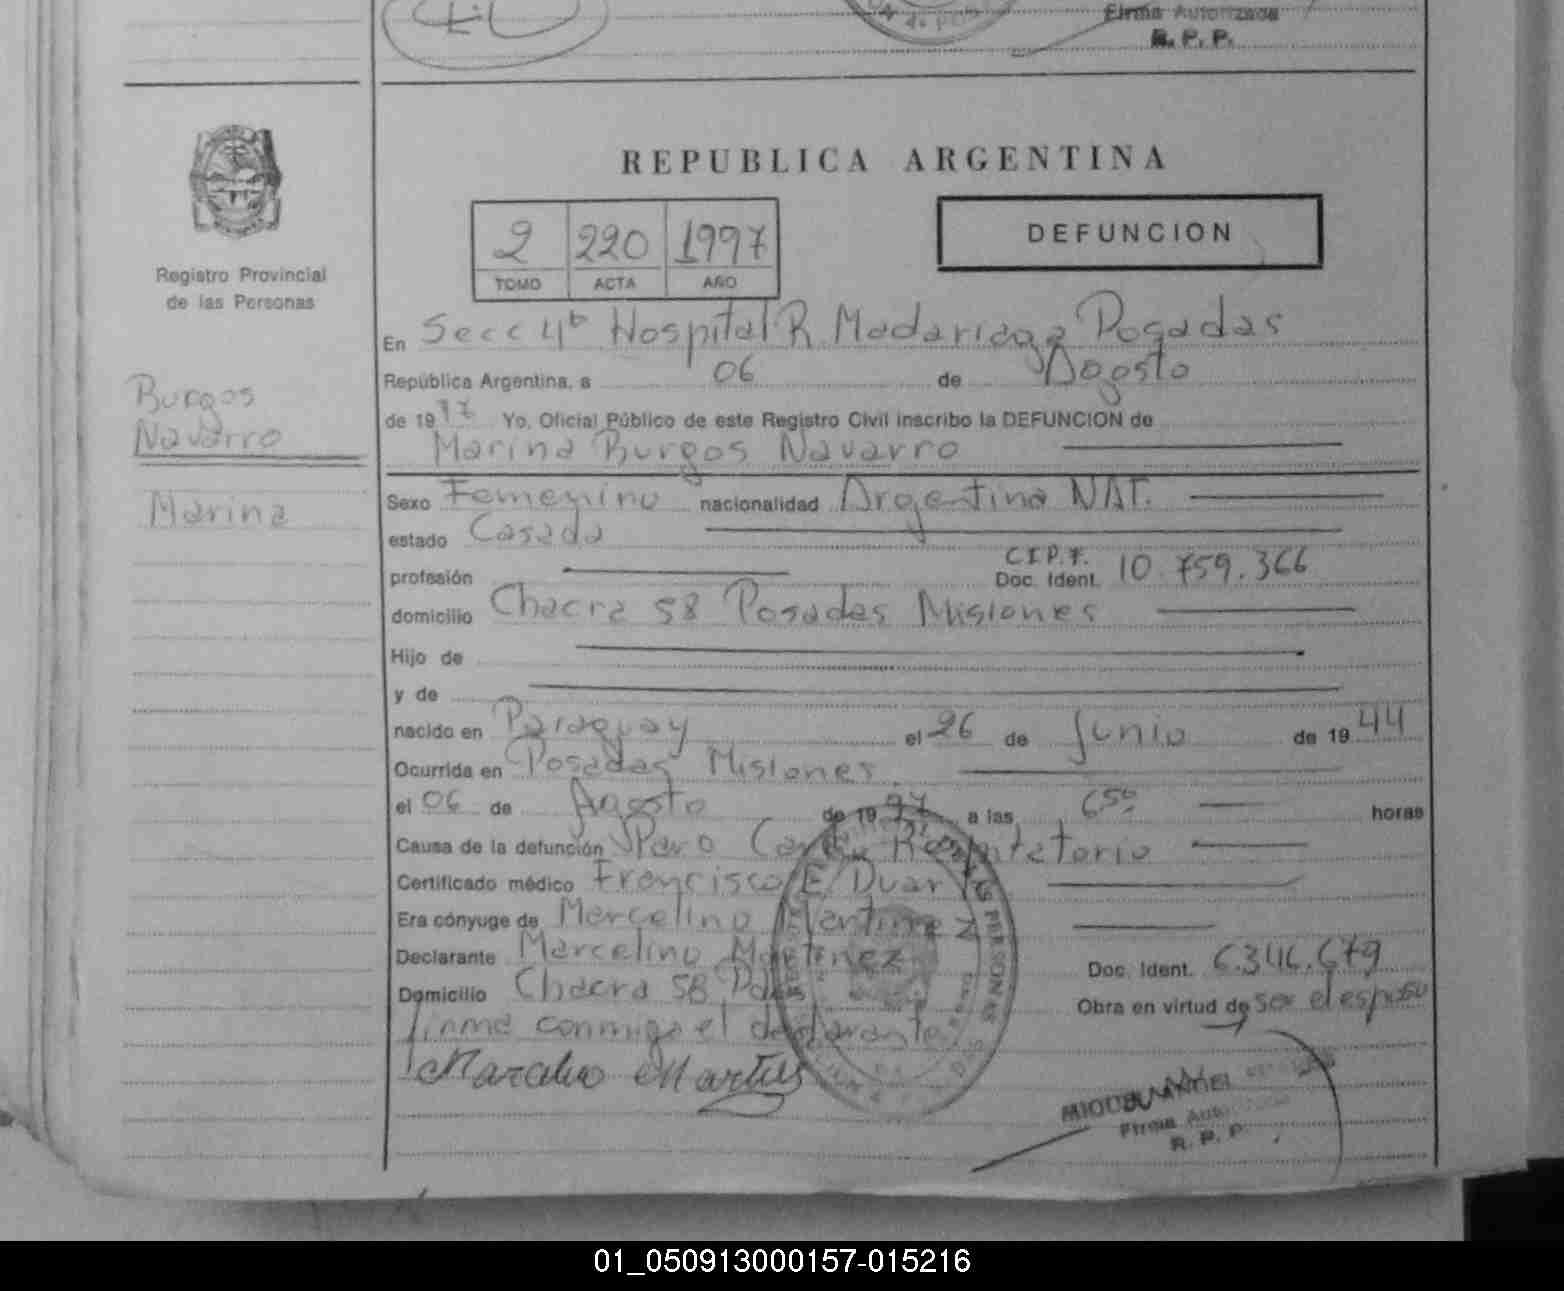 Firma Autorizada
R. P. P.
REPUBLICA ARGENTINA
2 220 1997
TOMO ACTA AÑO
DEFUNCION
Registro Provincial
de las Personas
Burgos
Navarro
Marina
En Secc 4ª Hospital R. Madariaga Posadas
República Argentina, a 06 de Agosto
de 1997 Yo, Oficial Público de este Registro Civil inscribo la DEFUNCION de
Marina Burgos Navarro
Sexo Femenino nacionalidad Argentina NAT.
estado Casada
C.I.P.F.
profesión Doc. Ident. 10.759.366
domicilio Chacra 58 Posadas Misiones
Hijo de
y de
nacido en Paraguay el 26 de Junio de 1944
Ocurrida en Posadas Misiones
el 06 de Agosto de 1997 a las 650 horas
Causa de la defunción Paro Cardio Respiratorio
Certificado médico Francisco E. Duarte
Era cónyuge de Marcelino Martinez
Declarante Marcelino Martinez Doc. Ident. 6.346.679
Domicilio Chacra 58 Pdas Obra en virtud de ser el esposo
firma conmigo el declarante
Firma Autorizada
R. P. P.
01_050913000157-015216